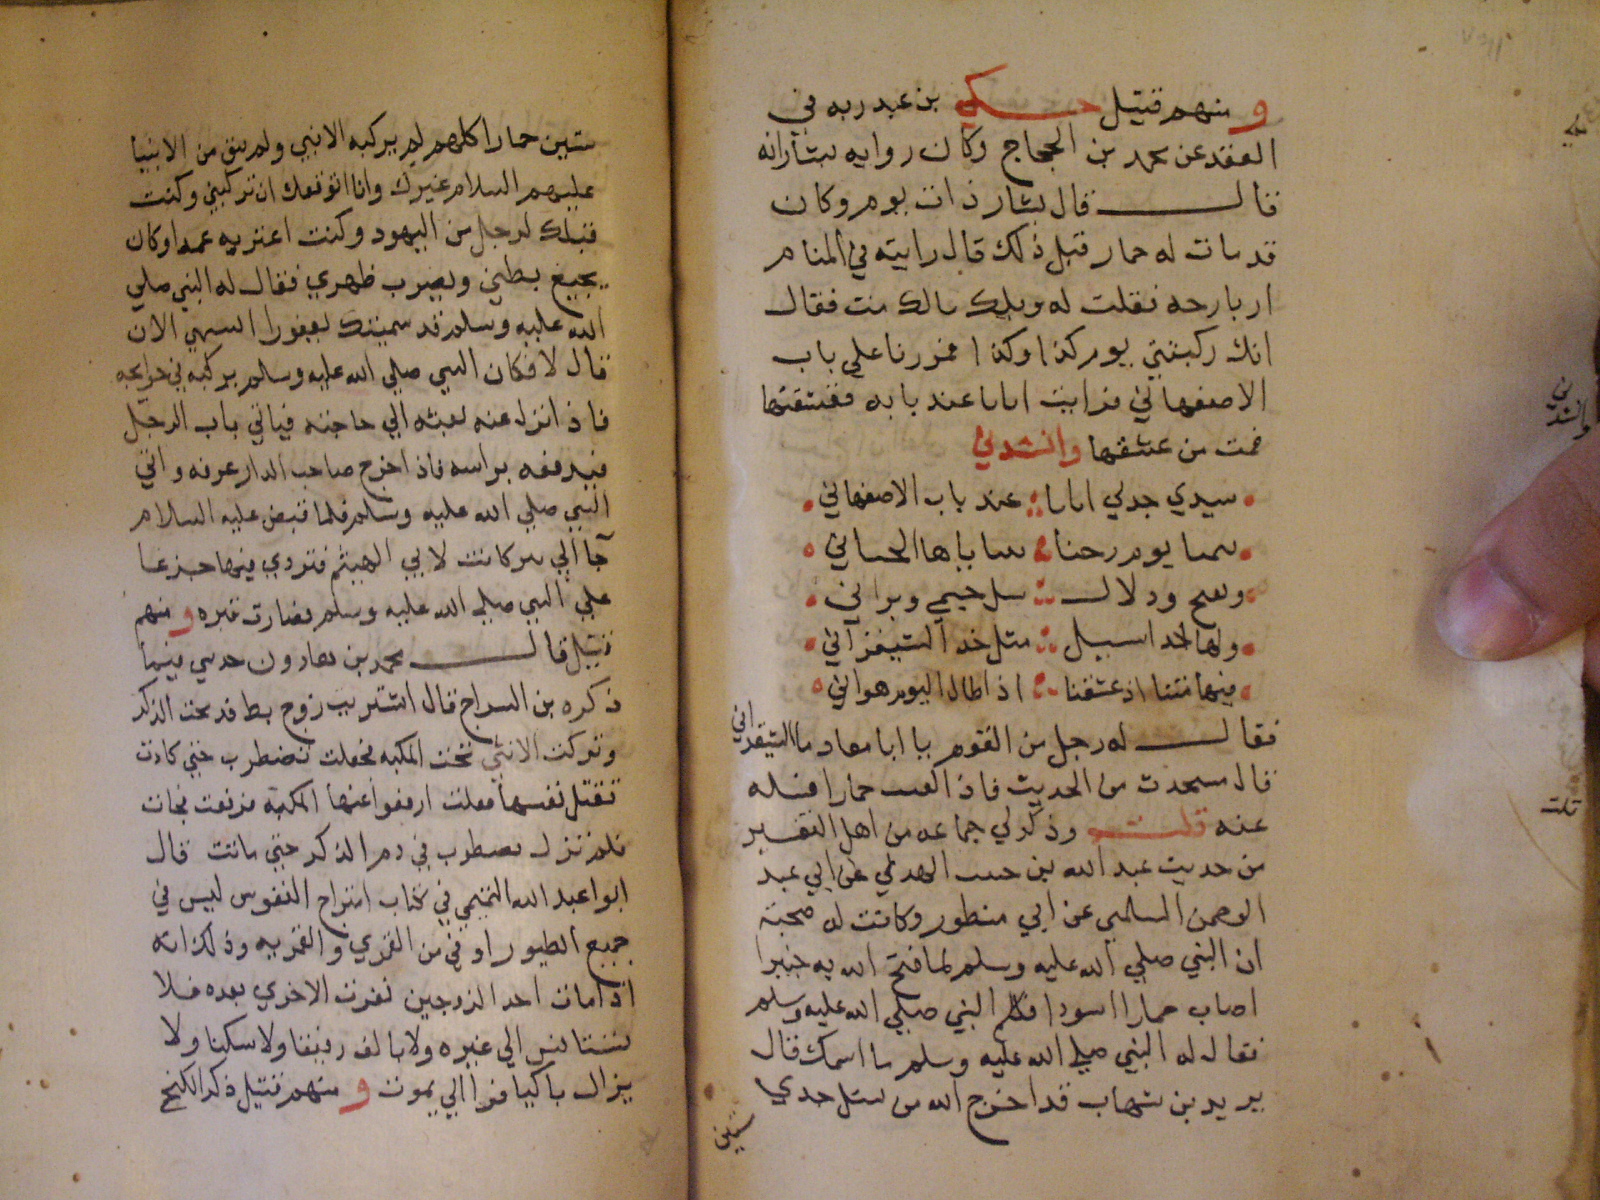 ومنهم قتيل حكي بن عبد ربه في
العقد عن محمد بن الحجاج وكان راويه بشار انه
قال قال بشار ذات يوم وكان
قد مات له حمار قبل ذلك قال رايته في المنام
البارحه فقلت له ويلك مالك مت فقال
انك ركبتني يوم كذا وكذا فمررنا على باب
الاصفهاني فرايت اتانا عند بابه فعشقتها
فمت من عشقها وانشدني
سيدي جدلي اتانا عند باب الاصفهاني
يوم رحنا الحسان
ودلال سل جسمي وبراني
ولها خد اسيل مثل خد الشيفراني
فيها متنا اذ عشقنا اذا طال اليوم هواني
فقال له رجل من القوم يا ابا معاد ما الشيقراني
قال من الحديث فاذا حمارا فسله
عنه قلت وذكر لي جماعه من اهل التفسير
من حديث عبد الله بن الهدلي عن ابي عبد
الرحمن السلمي عن ابي منظور وكانت له صحبة
ان النبي صلي الله عليه وسلم لما فتح الله به خيبرا
اصاب حمارا اسودا فكلم النبي صلي الله عليه وسلم
فقال له النبي صلي الله عليه وسلم ما اسمك قال
يريد بن شهاب قد اخرج الله من نسل جدي
ستين
وانشدني
قلت
ستين حمارا كلهم لم يركبه الا نبي ولم يبق من الانبيا
عليهم السلام غيرك وانا اتوقعك ان تركبني وكنت
قبلك لرجل من اليهود وكنت اعثر به عمدا وكان
يجيع بطني ويضرب ظهري فقال له النبي صلي
الله عليه وسلم قد سميتك يعفورا الان
قال لا فكان النبي صلي الله عليه وسلم يركبه في حوايجه
فاذا نزل عنه بعثه الي حاجته فياتي باب الرجل
فيدفعه براسه فاذا خرج صاحب الدار عرفه واتي
النبي صلي الله عليه وسلم فلما قبض عليه السلام
جا الي بير كانت لابي الهيثم فتردي فيها جزعا
علي النبي صلي الله عليه وسلم فصارت قبره ومنهم
قتيل قال محمد بن هارون حدثني فيما
ذكره بن السراج قال اشتريت زوج بط فذبحت الذكر
وتركت الانثي تحت المكبه فجعلت تضطرب حتي كادت
تقتل نفسها فقلت ارفعوا عنها المكبة فرفعت فجات
فلم تزل تضطرب في دم الذكر حتي ماتت قال
ابو اعبد الله التميمي في كتاب امتزاج النفوس ليس في
جميع الطيور اوفي من القمري والقمريه وذلك انه
اذا مات احد الزوجين تفرت الاخري بعده فلا
تستانس الي غيره ولا يالف رفيقا ولا سكينا ولا
يزال باكيا فردا الي يموت ومنهم قتيل ذكر الكنخ